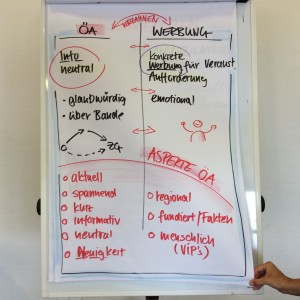 ÖA
WERBUNG
Info
neutral
Konkrete
Werbung für Veranst.
Aufforderung
• glaubwürdig
• über Bande
emotional
ZG
ASPEKTE ÖA
aktuell
spannend
kurz
informativ
neutral
Neuigkeit
regional
fundiert/Fakten
menschlich
(VIP's)